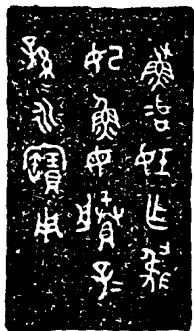 穌冶妊乍虢
妃魚母賸子〻
孫〻永寶用